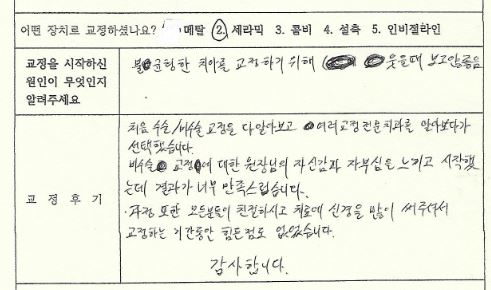 어떤 장치로 교정하셨나요? 메탈 2. 세라믹 3. 콤비 4. 설측 5. 인비절라인
교정을 시작하신
원인이 무엇인지
알려주세요
불균형한 치아를 교정하기 위해 ( 웃을때 보고안좋음
교 정 후 기
처음 수술/비수술 교정을 다 알아보고 여러교정전문치과를 알아보다가
선택했습니다.
비수술 교정에 대한 원장님의 자신감과 자부심을 느끼고 시작했
는데 결과가 너무 만족스럽습니다.
또한 모든분들이 친절하시고 치료에 신경을 많이 써주셔서
교정하는 기간동안 힘든점도 없었습니다.
감사합니다.